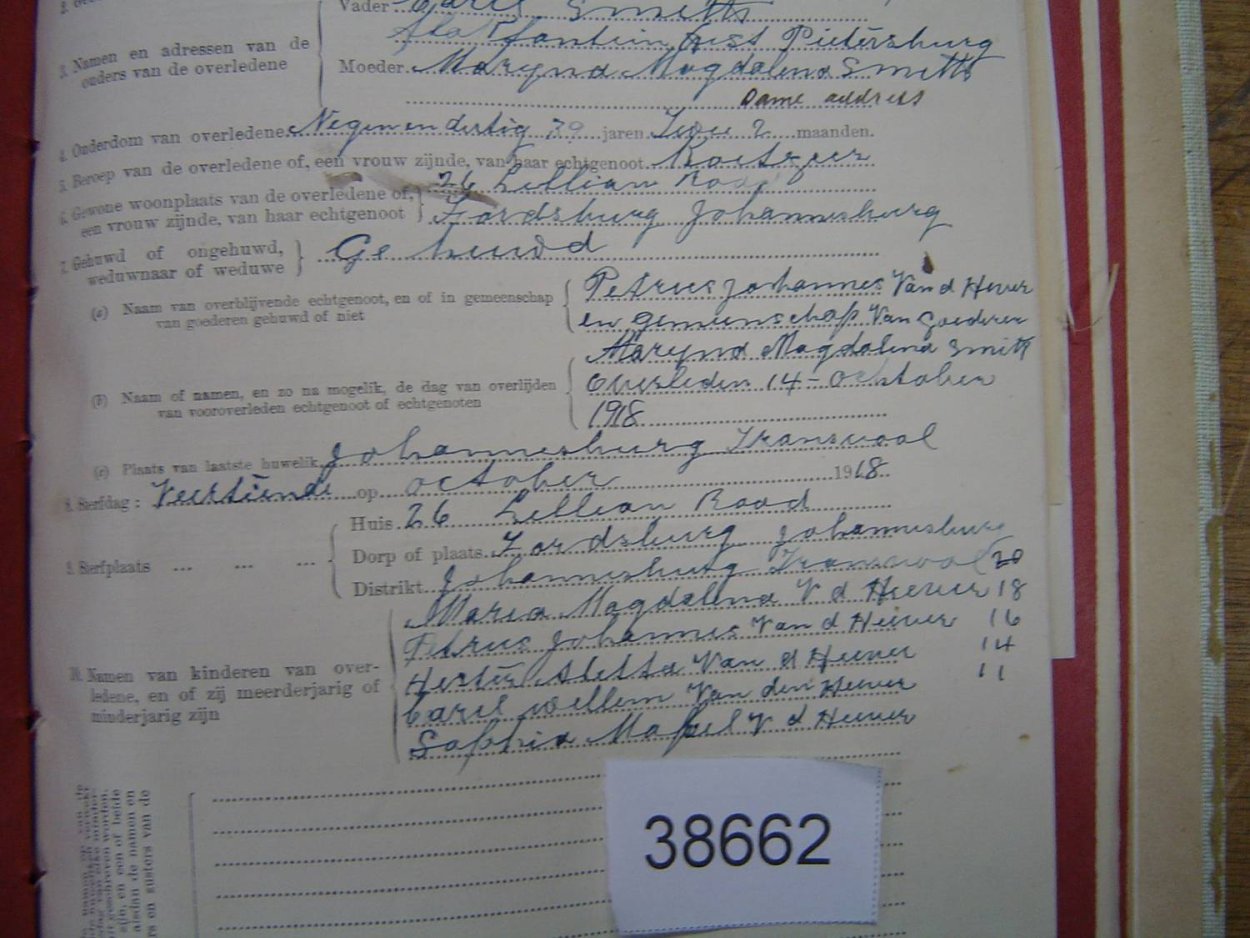 Vader Carel Smitts
3. Namen en adressen van de
ouders van de overledene
Pietersburg
Moeder Maryna Magdalena Smitts
Dame address
4. Onderdom van overledene Negen en dertig 39 jaren Twee 2 maanden.
5. Beroep van de overledene of, een vrouw zijnde, van haar echtgenoot
6. Gewone woonplaats van de overledene of,
een vrouw zijnde, van haar echtgenoot
26 Lellian Road
Fordsburg Johannesburg
7. Gehuwd of ongehuwd,
weduwnaar of weduwe
Gehuwd
(a) Naam van overblijvende echtgenoot, en of in gemeenschap
van goederen gehuwd of niet
Petrus Johannes Van d Hever
en gemeenschap Van Goederen
Maryna Magdalena Smitt
(b) Naam of namen, en zo na mogelik, de dag van overlijden
van vooroverleden echtgenoot of echtgenoten
Overleden 14 - October
1918
(c) Plaats van laatste huwelik Johannesburg Transvaal
8. Sterfdag: Veertiende op October 1918
9. Sterfplaats ... ... ...
Huis 26 Lellian Road
Dorp of plaats Fordsburg Johannesburg
Distrikt Johannesburg Transvaal 20
10. Namen van kinderen van over-
ledene, en of zij meerderjarig of
minderjarig zijn
Maria Magdalena V d Heever 18
Petrus Johannes Van d Heever 16
Hester Aletta Van d Heever 14
Carel Willem Van den Heever 11
Sophia Mabel V d Heever
38662